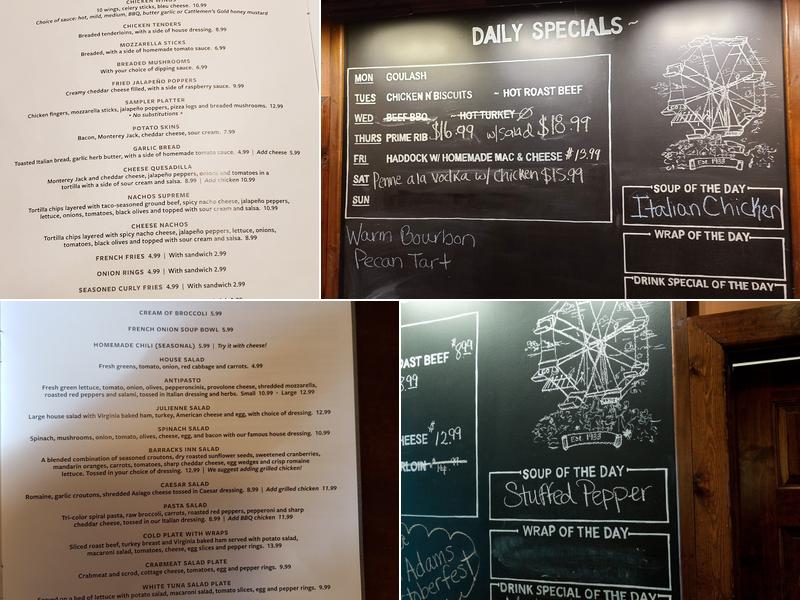 CHICKEN WINGS
10 wings, celery sticks, bleu cheese. 10.99
Choice of sauce: hot, mild, medium, BBQ, butter garlic or Cattlemen's Gold honey mustard
CHICKEN TENDERS
Breaded tenderloins, with a side of house dressing. 8.99
MOZZARELLA STICKS
Breaded, with a side of homemade tomato sauce. 6.99
BREADED MUSHROOMS
With your choice of dipping sauce. 6.99
FRIED JALAPEÑO POPPERS
Creamy cheddar cheese filled, with a side of raspberry sauce. 9.99
SAMPLER PLATTER
Chicken fingers, mozzarella sticks, jalapeño poppers, pizza logs and breaded mushrooms. 12.99
• No substitutions •
POTATO SKINS
Bacon, Monterey Jack, cheddar cheese, sour cream. 7.99
GARLIC BREAD
Toasted Italian bread, garlic herb butter, with a side of homemade tomato sauce. 4.99 | Add cheese 5.99
CHEESE QUESADILLA
Monterey Jack and cheddar cheese, jalapeño peppers, onions and tomatoes in a
tortilla with a side of sour cream and salsa. 8.99 | Add chicken 10.99
NACHOS SUPREME
Tortilla chips layered with taco-seasoned ground beef, spicy nacho cheese, jalapeño peppers,
lettuce, onions, tomatoes, black olives and topped with sour cream and salsa. 10.99
CHEESE NACHOS
Tortilla chips layered with spicy nacho cheese, jalapeño peppers, lettuce, onions,
tomatoes, black olives and topped with sour cream and salsa. 8.99
FRENCH FRIES 4.99 | With sandwich 2.99
ONION RINGS 4.99 | With sandwich 2.99
SEASONED CURLY FRIES 4.99 | With sandwich 2.99
DAILY SPECIALS ~
MON GOULASH
TUES CHICKEN N' BISCUITS ~ HOT ROAST BEEF
WED BEEF BBQ ~ HOT TURKEY
THURS PRIME RIB $16.99 w/salad $18.99
FRI HADDOCK W/ HOMEMADE MAC & CHEESE $13.99
SAT Penne ala Vodka w/ Chicken $15.99
SUN
Warm Bourbon
Pecan Tart
EST. 1933
SOUP OF THE DAY
Italian Chicken
WRAP OF THE DAY
DRINK SPECIAL OF THE DAY
CREAM OF BROCCOLI 5.99
FRENCH ONION SOUP BOWL 5.99
HOMEMADE CHILI (SEASONAL) 5.99 | Try it with cheese!
HOUSE SALAD
Fresh greens, tomato, onion, red cabbage and carrots. 4.99
ANTIPASTO
Fresh green lettuce, tomato, onion, olives, pepperoncinis, provolone cheese, shredded mozzarella,
roasted red peppers and salami, tossed in Italian dressing and herbs. Small 10.99 • Large 12.99
JULIENNE SALAD
Large house salad with Virginia baked ham, turkey, American cheese and egg, with choice of dressing. 12.99
SPINACH SALAD
Spinach, mushrooms, onion, tomato, olives, cheese, egg, and bacon with our famous house dressing. 10.99
BARRACKS INN SALAD
A blended combination of seasoned croutons, dry roasted sunflower seeds, sweetened cranberries,
mandarin oranges, carrots, tomatoes, sharp cheddar cheese, egg wedges and crisp romaine
lettuce. Tossed in your choice of dressing. 12.99 | We suggest adding grilled chicken!
CAESAR SALAD
Romaine, garlic croutons, shredded Asiago cheese tossed in Caesar dressing. 8.99 | Add grilled chicken 11.99
PASTA SALAD
Tri-color spiral pasta, raw broccoli, carrots, roasted red peppers, pepperoni and sharp
cheddar cheese, tossed in our Italian dressing. 8.99 | Add BBQ chicken 11.99
COLD PLATE WITH WRAPS
Sliced roast beef, turkey breast and Virginia baked ham served with potato salad,
macaroni salad, tomato slices, cheese, egg slices and pepper rings. 13.99
CRABMEAT SALAD PLATE
Crabmeat and scrod, cottage cheese, tomatoes, egg and pepper rings. 9.99
WHITE TUNA SALAD PLATE
Served on a bed of lettuce with potato salad, macaroni salad, tomato slices, egg and pepper rings. 9.99
OAST BEEF $8.99
8.99
HEESE $12.99
RLOIN
Adams
toberfest
EST. 1933
SOUP OF THE DAY
Stuffed Pepper
WRAP OF THE DAY
DRINK SPECIAL OF THE DAY